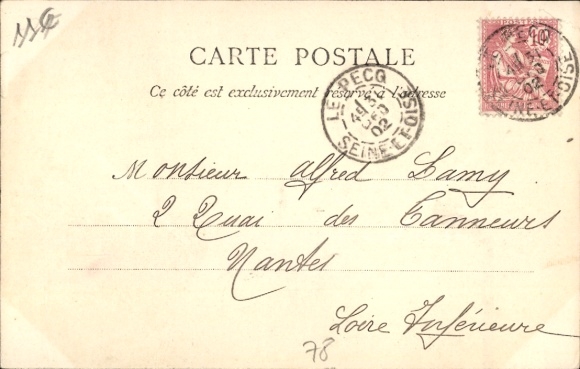 CARTE POSTALE
Ce côté est exclusivement réservé à l'adresse
LE PECQ
31
DEC
02
SEINE-ET-OISE
10
Monsieur Alfred Lamy
2 Quai des Tanneurs
Nantes
Loire Inférieure
78